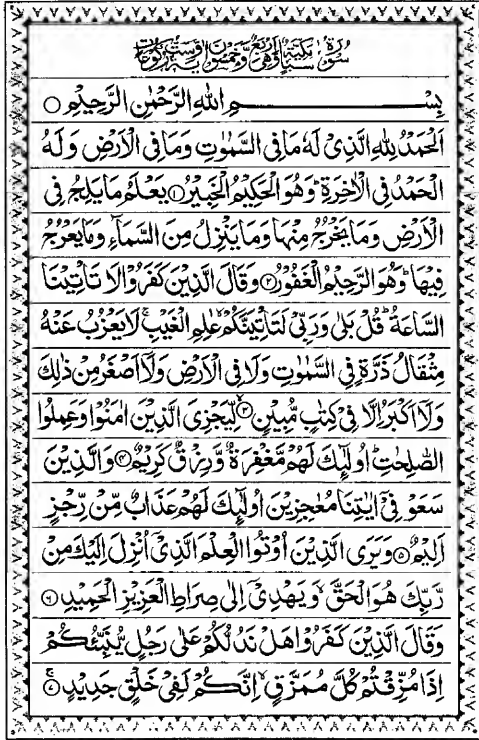 سُوْرَةُ سَبَاٍ مَكِّيَّةٌ وَّهِيَ اَرْبَعٌ وَّخَمْسُوْنَ اٰيَةً وَّسِتُّ رُكُوْعَاتٍ
بِسْمِ اللهِ الرَّحْمٰنِ الرَّحِيْمِ ○
اَلْحَمْدُ لِلّٰهِ الَّذِيْ لَهٗ مَا فِي السَّمٰوٰتِ وَمَا فِي الْاَرْضِ وَلَهُ
الْحَمْدُ فِي الْاٰخِرَةِ ؕ وَهُوَ الْحَكِيْمُ الْخَبِيْرُ ۝۱ يَعْلَمُ مَا يَلِجُ فِي
الْاَرْضِ وَمَا يَخْرُجُ مِنْهَا وَمَا يَنْزِلُ مِنَ السَّمَآءِ وَمَا يَعْرُجُ
فِيْهَا ؕ وَهُوَ الرَّحِيْمُ الْغَفُوْرُ ۝۲ وَقَالَ الَّذِيْنَ كَفَرُوْا لَا تَاْتِيْنَا
السَّاعَةُ ؕ قُلْ بَلٰى وَرَبِّيْ لَتَاْتِيَنَّكُمْ ۙ عٰلِمِ الْغَيْبِ ۚ لَا يَعْزُبُ عَنْهُ
مِثْقَالُ ذَرَّةٍ فِي السَّمٰوٰتِ وَلَا فِي الْاَرْضِ وَلَاۤ اَصْغَرُ مِنْ ذٰلِكَ
وَلَاۤ اَكْبَرُ اِلَّا فِيْ كِتٰبٍ مُّبِيْنٍ ۝۳ لِّيَجْزِيَ الَّذِيْنَ اٰمَنُوْا وَعَمِلُوا
الصّٰلِحٰتِ ؕ اُولٰٓئِكَ لَهُمْ مَّغْفِرَةٌ وَّرِزْقٌ كَرِيْمٌ ۝۴ وَالَّذِيْنَ
سَعَوْ فِيْۤ اٰيٰتِنَا مُعٰجِزِيْنَ اُولٰٓئِكَ لَهُمْ عَذَابٌ مِّنْ رِّجْزٍ
اَلِيْمٌ ۝۵ وَيَرَى الَّذِيْنَ اُوْتُوا الْعِلْمَ الَّذِيْۤ اُنْزِلَ اِلَيْكَ مِنْ
رَّبِّكَ هُوَ الْحَقَّ ۙ وَيَهْدِيْۤ اِلٰى صِرَاطِ الْعَزِيْزِ الْحَمِيْدِ ۝۶
وَقَالَ الَّذِيْنَ كَفَرُوْا هَلْ نَدُلُّكُمْ عَلٰى رَجُلٍ يُّنَبِّئُكُمْ
اِذَا مُزِّقْتُمْ كُلَّ مُمَزَّقٍ ۙ اِنَّكُمْ لَفِيْ خَلْقٍ جَدِيْدٍ ۝۷